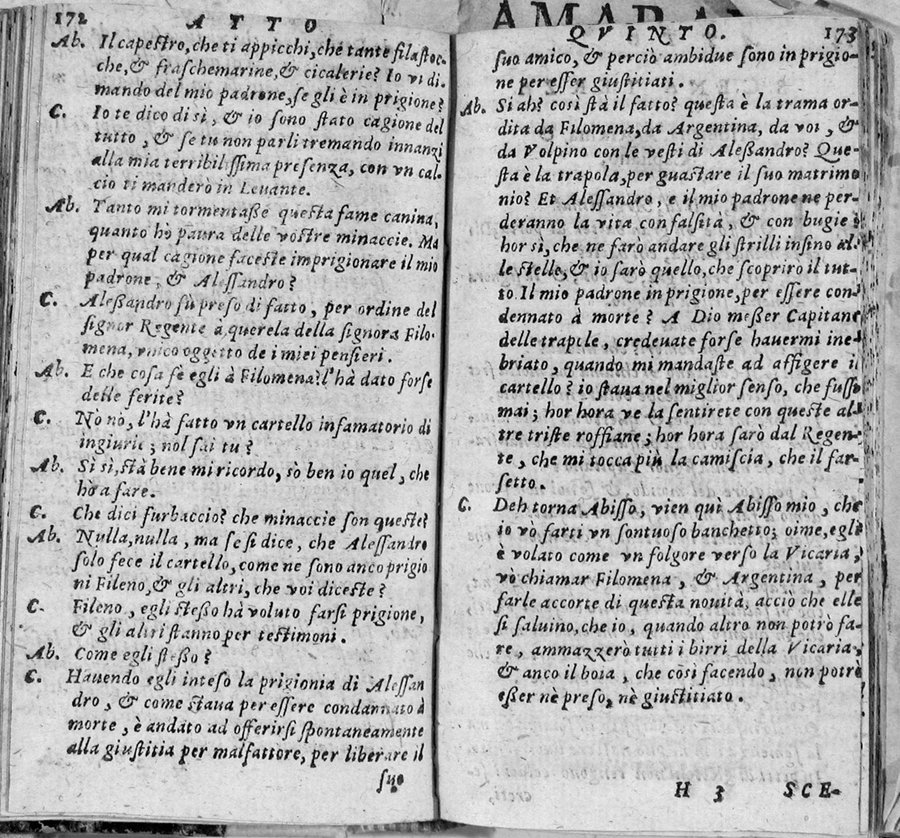 172 ATTO
Ab. Il capestro, che ti appicchi, che tante filastoc-
che, & fraschemarine, & cicalerie? Io vi di-
mando del mio padrone, se gli è in prigione?
C. Io te dico di sì, & io sono stato cagione del
tutto, & se tu non parli tremando innanzi
alla mia terribilissima presenza, con vn cal-
cio ti manderò in Leuante.
Ab. Tanto mi tormentasse questa fame canina,
quanto hò paura delle vostre minaccie. Ma
per qual cagione faceste imprigionare il mio
padrone, & Alessandro?
C. Alessandro fù preso di fatto, per ordine del
signor Regente à querela della signora Filo-
mena, vnico oggetto de i miei pensieri.
Ab. E che cosa fè egli à Filomena? l'hà dato forse
delle ferite?
C. Nò nò, l'hà fatto vn cartello infamatorio di
ingiurie; nol sai tu?
Ab. Sì sì, stà bene mi ricordo, sò ben io quel, che
hò a fare.
C. Che dici furbaccio? che minaccie son queste?
Ab. Nulla, nulla, ma se si dice, che Alessandro
solo fece il cartello, come ne sono anco prigio
ni Fileno, & gli altri, che voi diceste?
C. Fileno, egli stesso hà voluto farsi prigione,
& gli altri stanno per testimoni.
Ab. Come egli stesso?
C. Hauendo egli inteso la prigionia di Alessan
dro, & come staua per essere condannato à
morte, è andato ad offerirsi spontaneamente
alla giustitia per malfattore, per liberare il
suo
AMARAN
QVINTO. 173
suo amico, & perciò ambidue sono in prigio-
ne per esser giustitiati.
Ab. Si ah? così stà il fatto? questa è la trama or-
dita da Filomena, da Argentina, da voi, &
da Volpino con le vesti di Alessandro? Que-
sta è la trapola, per guastare il suo matrimo
nio? Et Alessandro, e il mio padrone ne per-
deranno la vita con falsità, & con bugie?
hor sì, che ne farò andare gli strilli insino al-
le stelle, & io sarò quello, che scopriro il tut-
to. Il mio padrone in prigione, per essere con-
dennato à morte? A Dio messer Capitane
delle trapole, credeuate forse hauermi ine-
briato, quando mi mandaste ad affigere il
cartello? io staua nel miglior senso, che fussi
mai; hor hora ve la sentirete con queste al-
tre triste roffiane; hor hora sarò dal Regen-
te, che mi tocca più la camiscia, che il far-
setto.
C. Deh torna Abisso, vien quì Abisso mio, che
io vò farti vn sontuoso banchetto; oime, egli
è volato come vn folgore verso la Vicaria,
vò chiamar Filomena, & Argentina, per
farle accorte di questa nouità, acciò che elle
si saluino, che io, quando altro non potrò fa-
re, ammazzerò tutti i birri della Vicaria,
& anco il boia, che così facendo, non potrò
esser nè preso, nè giustitiato.
H 3 SCE-